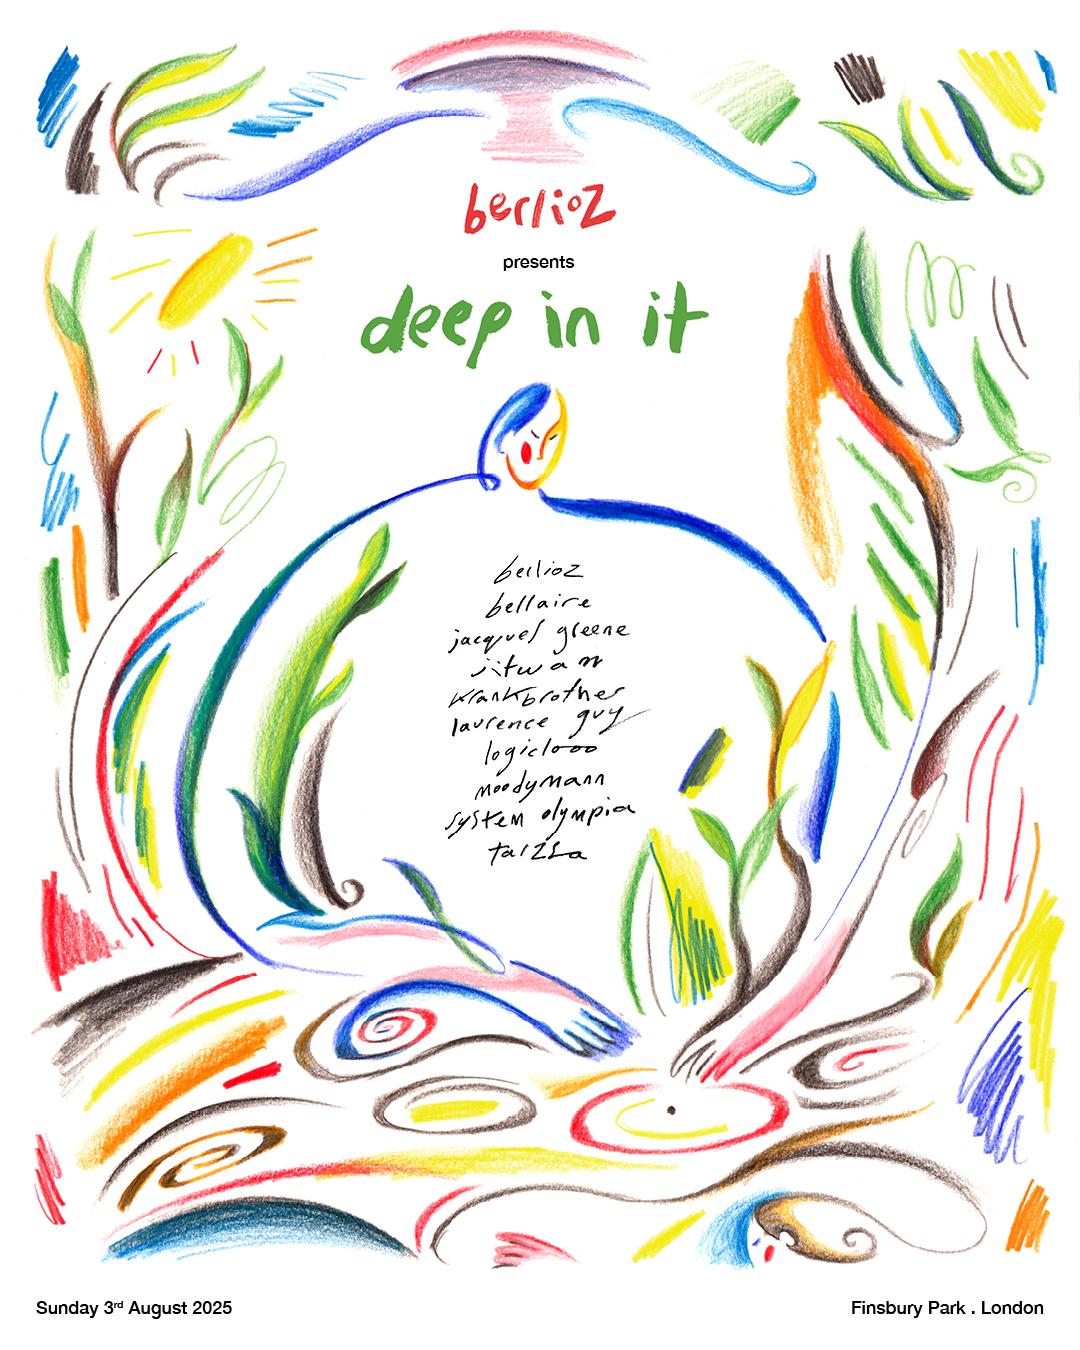 berlioz
presents
deep in it
berlioz
bellaire
jacques greene
jitwam
krankbrother
laurence guy
logic1000
moodymann
system olympia
tarzsa
Sunday 3rd August 2025
Finsbury Park . London